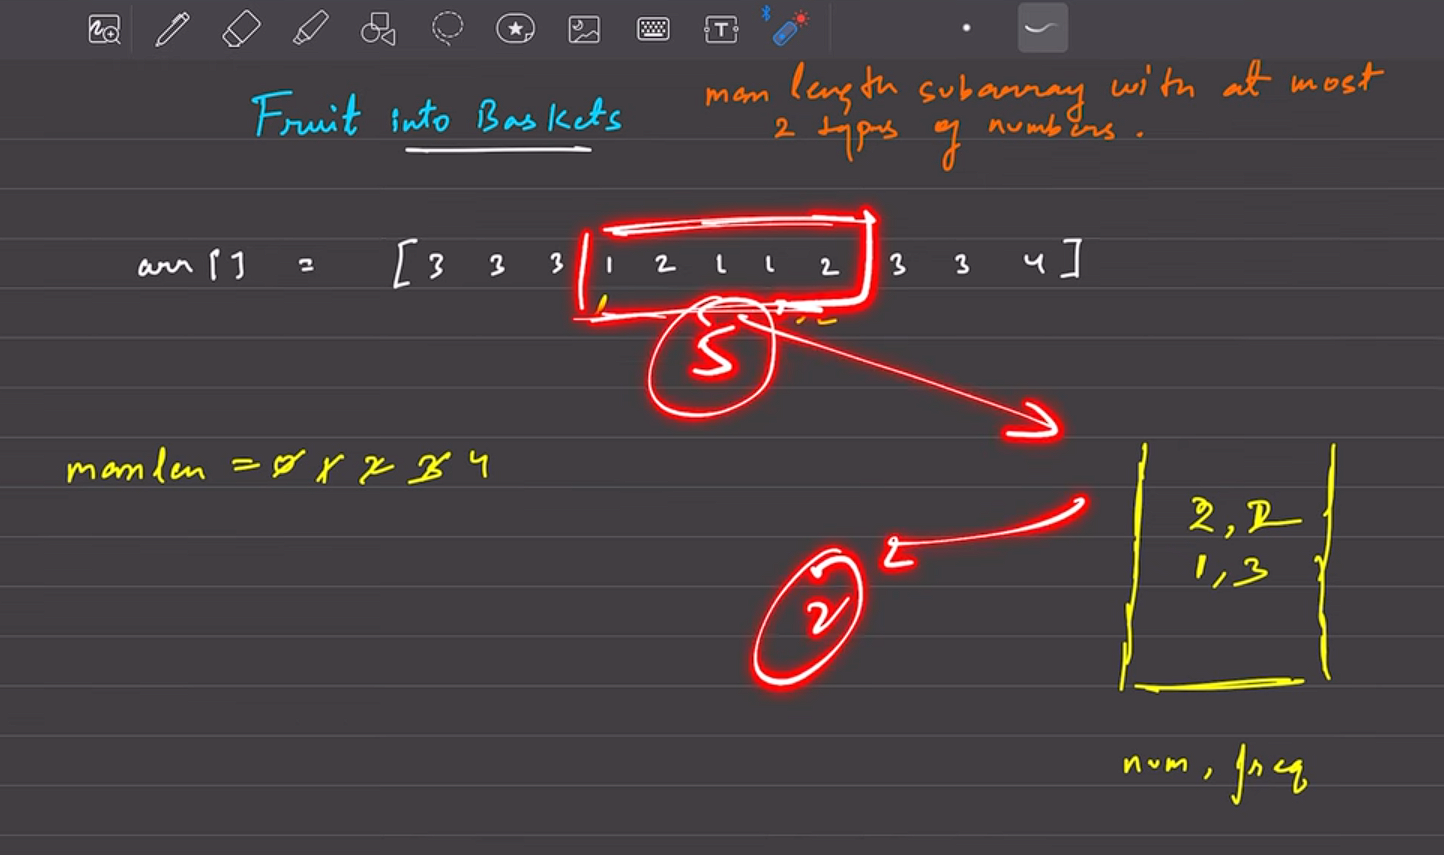 Fruit into Baskets
max length subarray with at most
2 types of numbers.
arr[] = [3 3 3 1 2 1 1 2 3 3 4]
5
maxlen = 0 1 2 3 4
2, 2
1, 3
2
num, freq